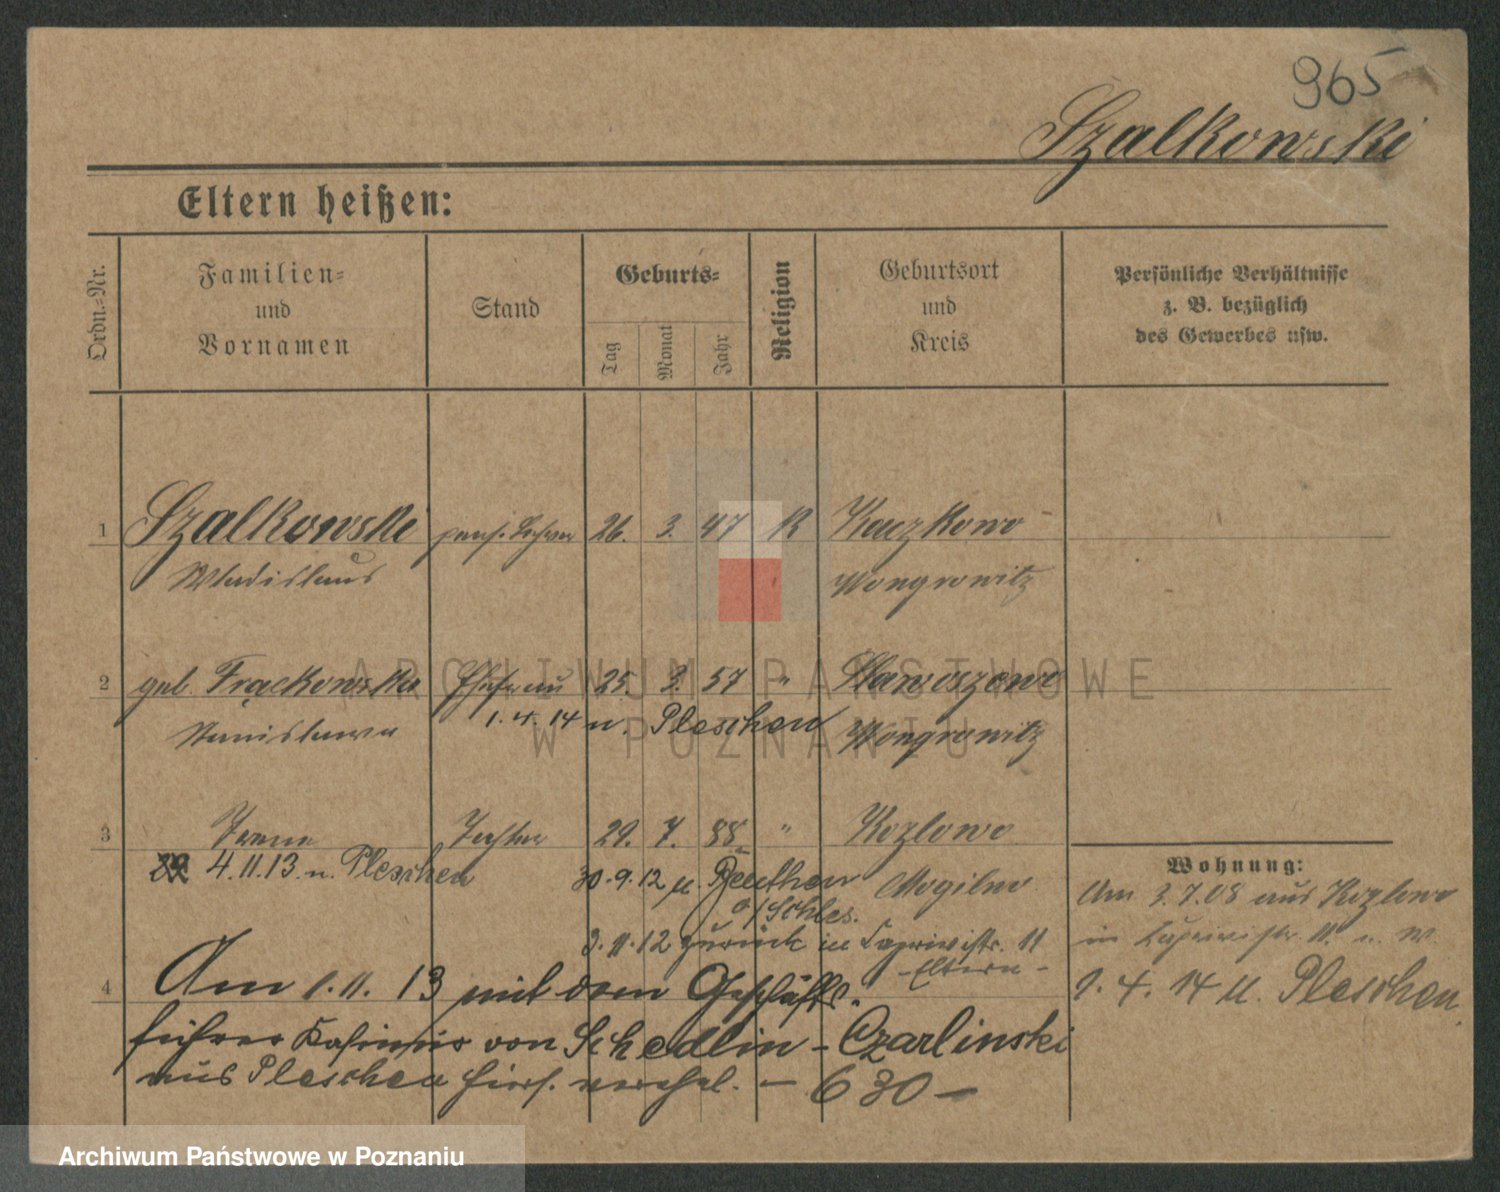 965
Szalkowski
Eltern heißen:
Ordn.-Nr.
Familien-
und
Vornamen
Stand
Geburts-
Tag
Monat
Jahr
Religion
Geburtsort
und
Kreis
Persönliche Verhältnisse
z. B. bezüglich
des Gewerbes usw.
1 Szalkowski pens. Lehrer 26. 3. 47 K Kaczkowo
Wladislaus Wongrowitz
2 geb. Frąckowska Ehefrau 25. 3. 57 " Slawoszewo
1. 4. 14 n. Pleschen
Stanislawa Wongrowitz
3 Irene Tochter 29. 7. 88 " Kozlowo
4. 11. 13. n. Pleschen 30. 9. 12 n. Beuthen Mogilno
o/Schles.
3. 11. 12 zurück in Caprivistr. 11
- Eltern -
4 Am 1. 11. 13 mit dem Geschäfts-
führer Kasimir von Schedlin - Czarlinski
aus Pleschen hies. verehel. - 630 -
Wohnung:
Am 3. 7. 08 aus Kozlowo
in Caprivistr. 11.
1. 4. 14 n. Pleschen.
ARCHIWUM PAŃSTWOWE
W POZNANIU
Archiwum Państwowe w Poznaniu